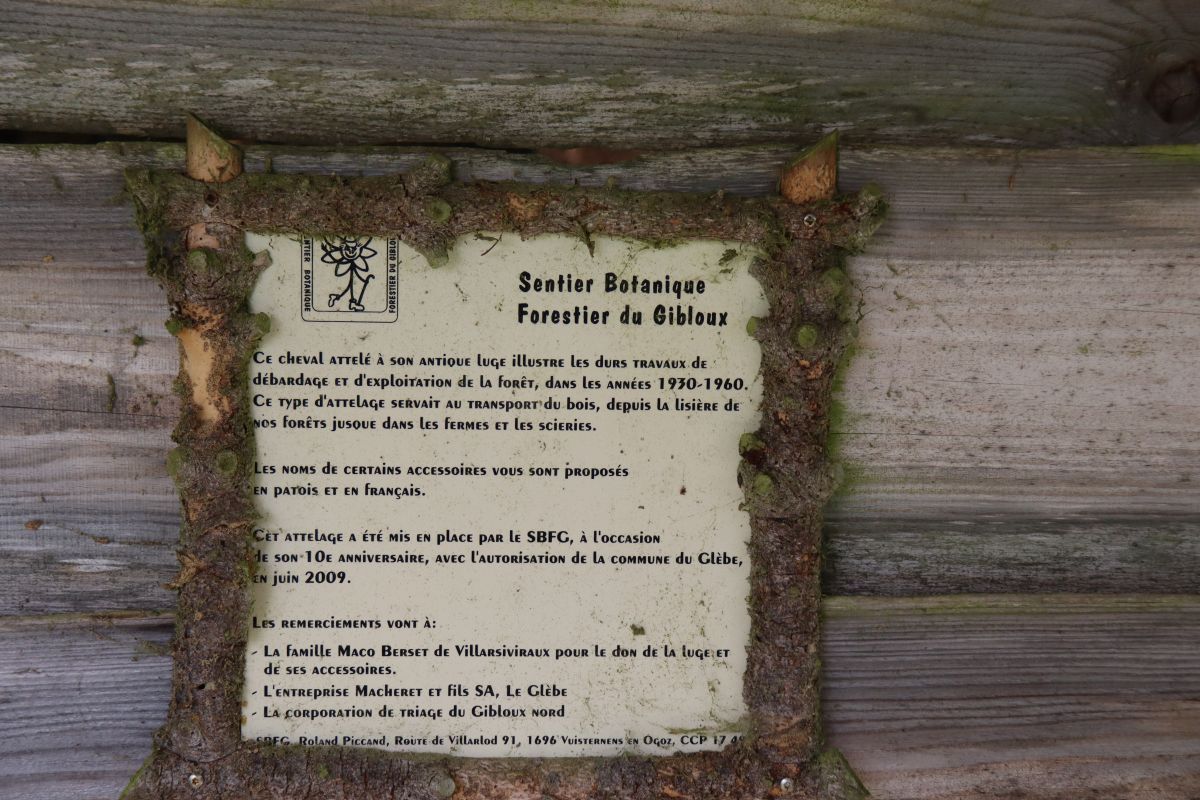 SENTIER BOTANIQUE
FORESTIER DU GIBLOUX
Sentier Botanique
Forestier du Gibloux
Ce cheval attelé à son antique luge illustre les durs travaux de
débardage et d'exploitation de la forêt, dans les années 1930-1960.
Ce type d'attelage servait au transport du bois, depuis la lisière de
nos forêts jusque dans les fermes et les scieries.
Les noms de certains accessoires vous sont proposés
en patois et en français.
Cet attelage a été mis en place par le SBFG, à l'occasion
de son 10e anniversaire, avec l'autorisation de la commune du Glèbe,
en juin 2009.
Les remerciements vont à:
- La famille Maco Berset de Villarsiviraux pour le don de la luge et
de ses accessoires.
- L'entreprise Macheret et fils SA, Le Glèbe
- La corporation de triage du Gibloux nord
SBFG, Roland Piccand, Route de Villarlod 91, 1696 Vuisternens en Ogoz, CCP 17